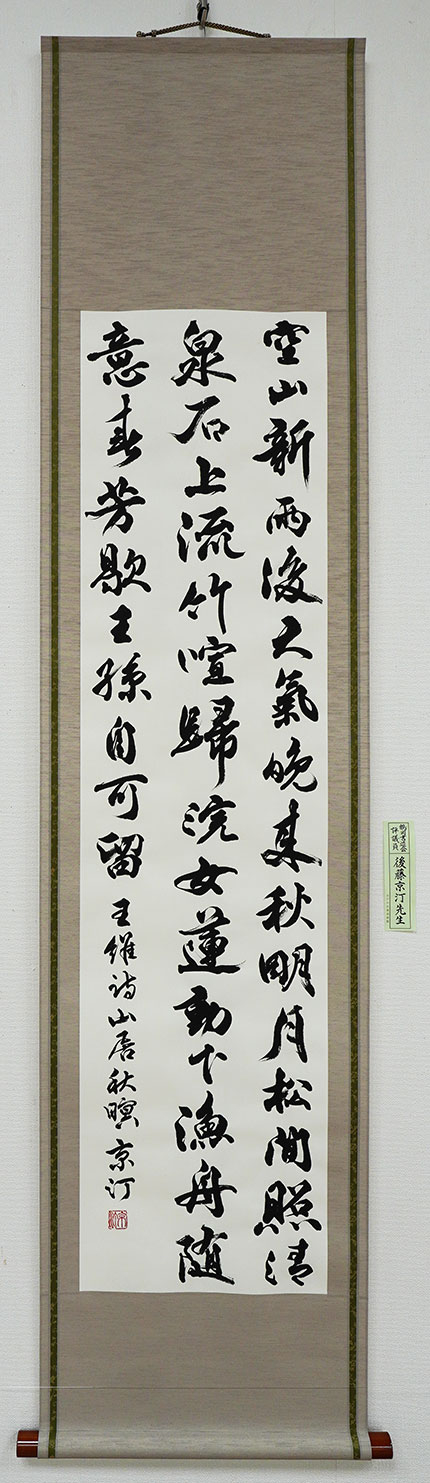 空山新雨後天氣晚来秋明月松間照清
泉石上流竹喧歸浣女蓮動下漁舟随
意春芳歇王孫自可留 王維詩山居秋暝 京汀
評議員
後藤京汀先生